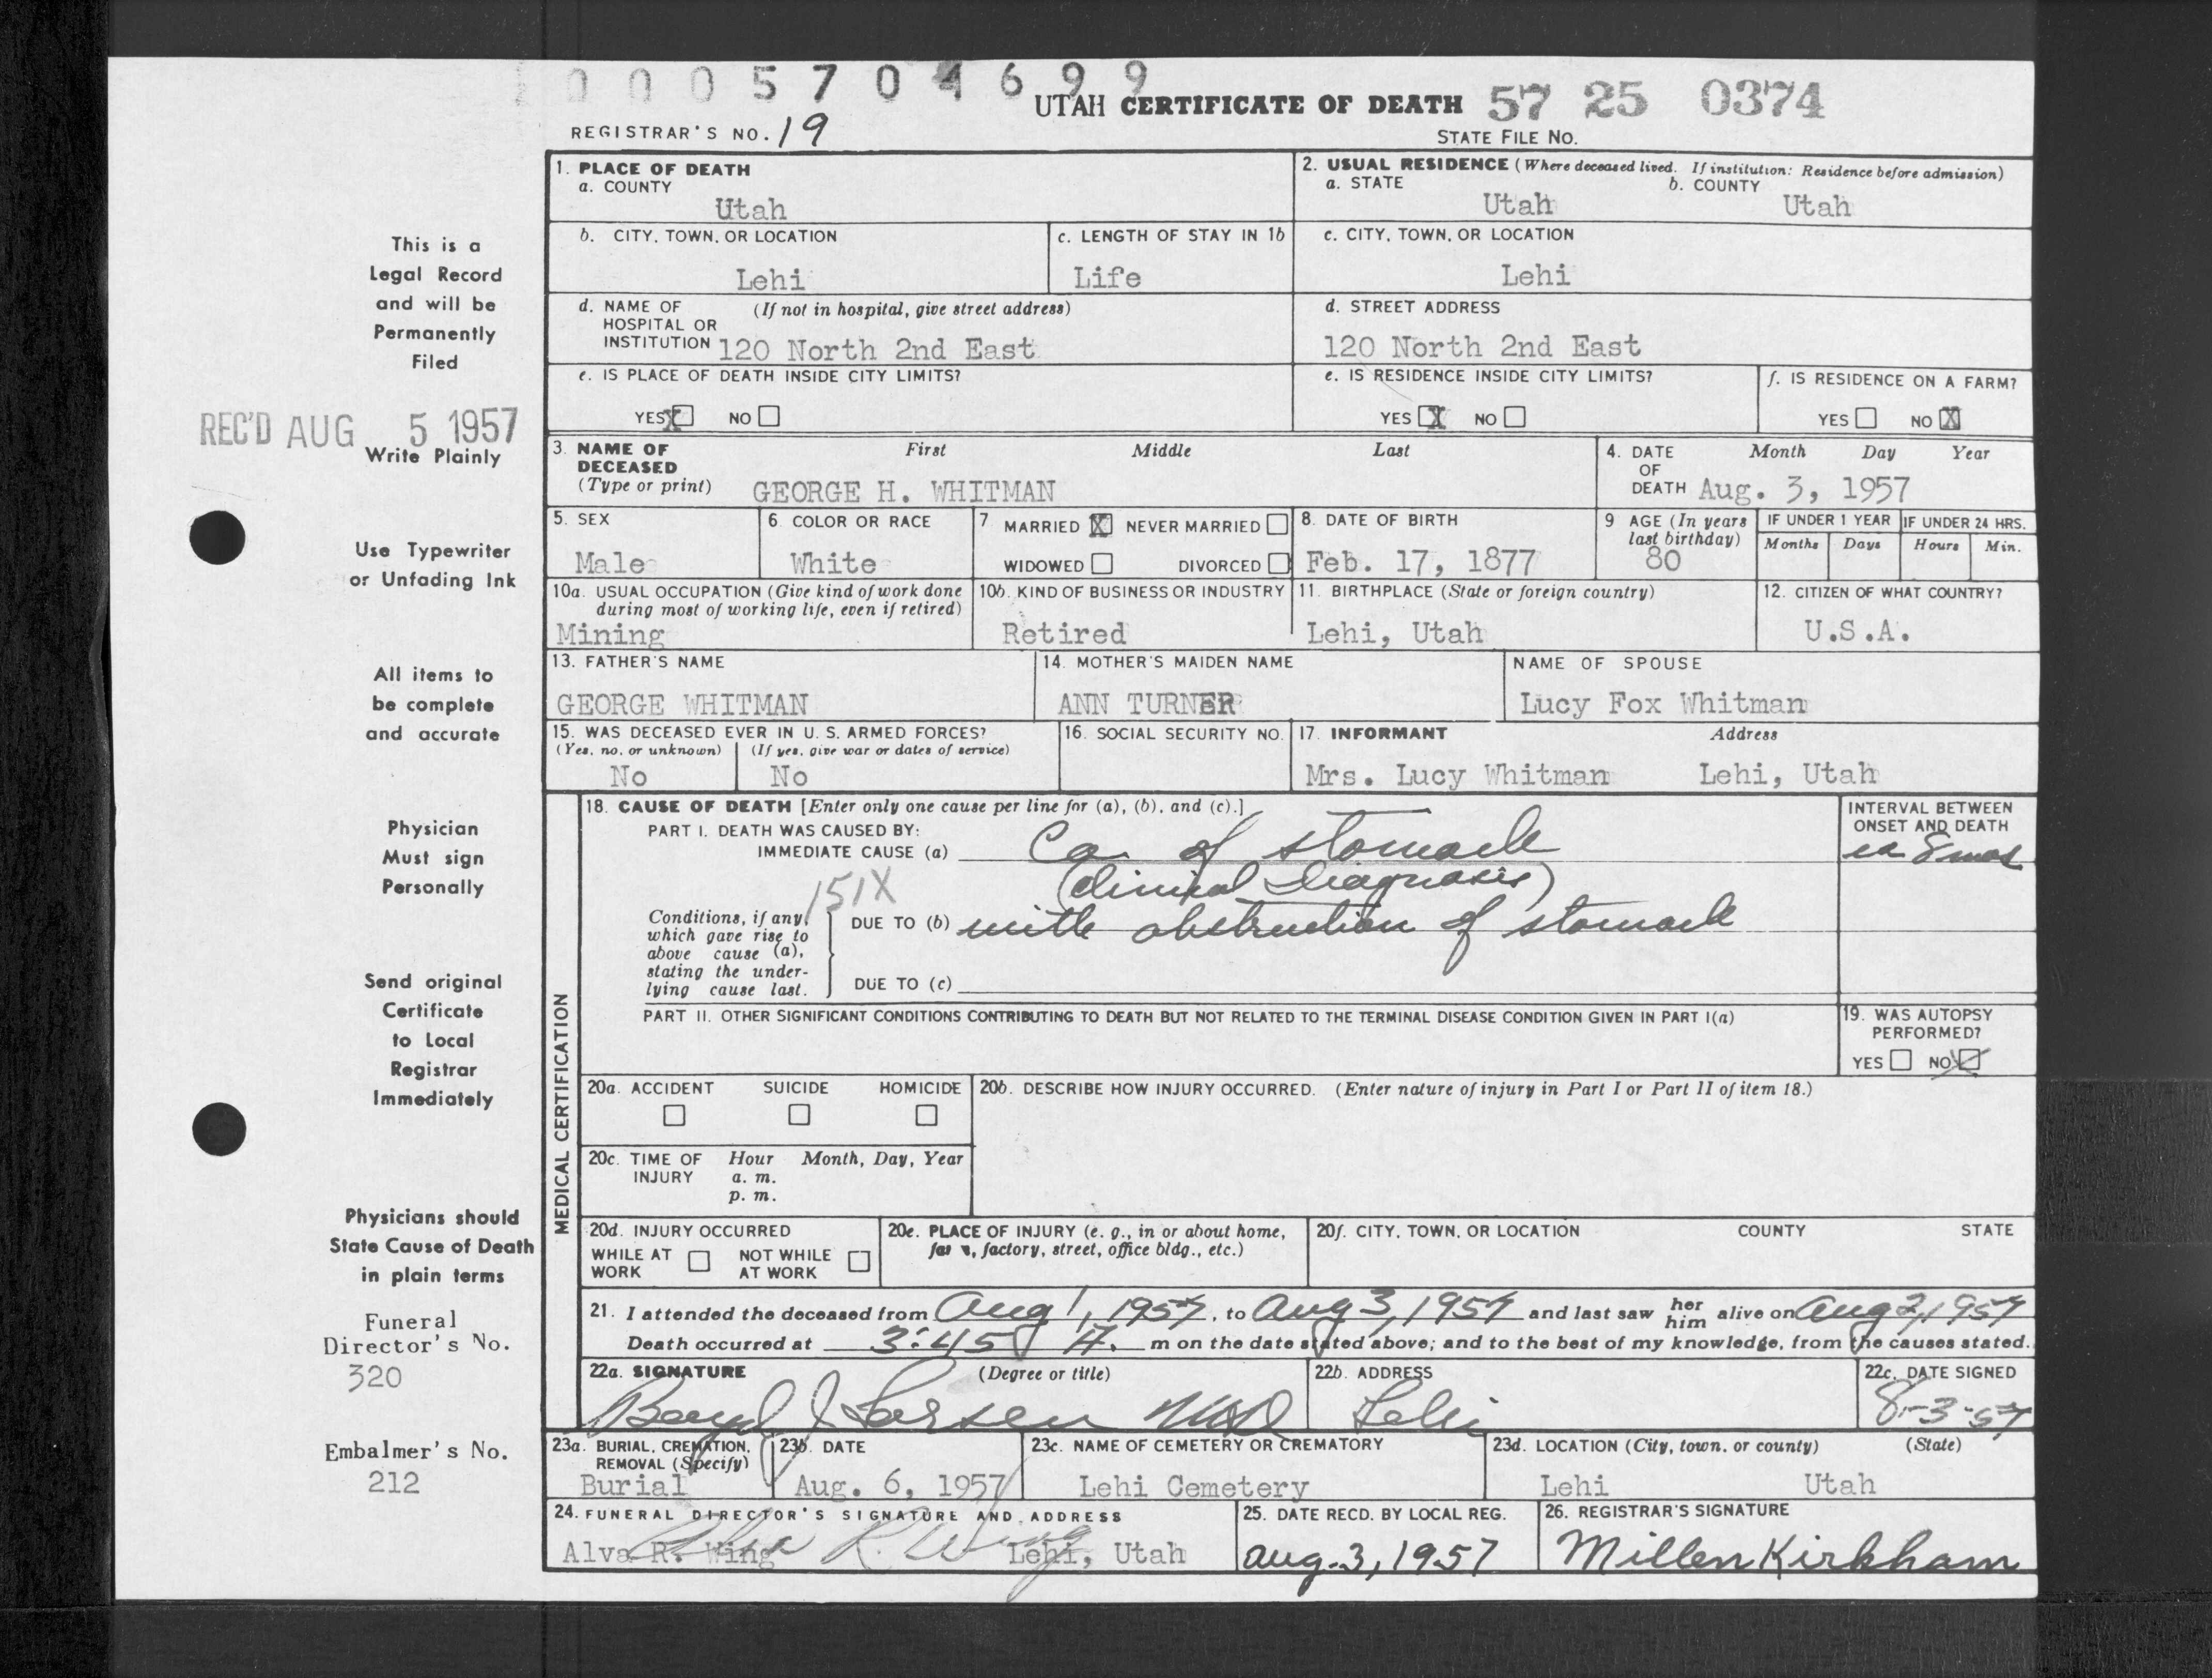 0005704699
UTAH CERTIFICATE OF DEATH 57 25 0374
REGISTRAR'S NO. 19
STATE FILE NO.
1. PLACE OF DEATH
a. COUNTY
Utah
2. USUAL RESIDENCE (Where deceased lived. If institution: Residence before admission)
a. STATE b. COUNTY
Utah Utah
b. CITY, TOWN, OR LOCATION
Lehi
c. LENGTH OF STAY IN 1b
Life
c. CITY, TOWN, OR LOCATION
Lehi
d. NAME OF (If not in hospital, give street address)
HOSPITAL OR
INSTITUTION 120 North 2nd East
d. STREET ADDRESS
120 North 2nd East
e. IS PLACE OF DEATH INSIDE CITY LIMITS?
YES X NO
e. IS RESIDENCE INSIDE CITY LIMITS?
YES X NO
f. IS RESIDENCE ON A FARM?
YES NO X
3. NAME OF First Middle Last
DECEASED
(Type or print) GEORGE H. WHITMAN
4. DATE Month Day Year
OF
DEATH Aug. 3, 1957
5. SEX
Male
6. COLOR OR RACE
White
7 MARRIED X NEVER MARRIED
WIDOWED DIVORCED
8. DATE OF BIRTH
Feb. 17, 1877
9 AGE (In years
last birthday)
80
IF UNDER 1 YEAR
Months Days
IF UNDER 24 HRS.
Hours Min.
10a. USUAL OCCUPATION (Give kind of work done
during most of working life, even if retired)
Mining
10b. KIND OF BUSINESS OR INDUSTRY
Retired
11. BIRTHPLACE (State or foreign country)
Lehi, Utah
12. CITIZEN OF WHAT COUNTRY?
U.S.A.
13. FATHER'S NAME
GEORGE WHITMAN
14. MOTHER'S MAIDEN NAME
ANN TURNER
NAME OF SPOUSE
Lucy Fox Whitman
15. WAS DECEASED EVER IN U. S. ARMED FORCES?
(Yes, no, or unknown) (If yes, give war or dates of service)
No No
16. SOCIAL SECURITY NO.
17. INFORMANT Address
Mrs. Lucy Whitman Lehi, Utah
MEDICAL CERTIFICATION
18. CAUSE OF DEATH [Enter only one cause per line for (a), (b), and (c).]
PART I. DEATH WAS CAUSED BY:
IMMEDIATE CAUSE (a) Ca of stomach
(Clinical Diagnosis)
151X
Conditions, if any,
which gave rise to
above cause (a),
stating the under-
lying cause last.
DUE TO (b) with obstruction of stomach
DUE TO (c)
INTERVAL BETWEEN
ONSET AND DEATH
ca 8 mos
PART II. OTHER SIGNIFICANT CONDITIONS CONTRIBUTING TO DEATH BUT NOT RELATED TO THE TERMINAL DISEASE CONDITION GIVEN IN PART I(a)
19. WAS AUTOPSY
PERFORMED?
YES NO X
20a. ACCIDENT SUICIDE HOMICIDE
20b. DESCRIBE HOW INJURY OCCURRED. (Enter nature of injury in Part I or Part II of item 18.)
20c. TIME OF Hour Month, Day, Year
INJURY a. m.
p. m.
20d. INJURY OCCURRED
WHILE AT NOT WHILE
WORK AT WORK
20e. PLACE OF INJURY (e. g., in or about home,
factory, street, office bldg., etc.)
20f. CITY, TOWN, OR LOCATION COUNTY STATE
21. I attended the deceased from Aug 1, 1957, to Aug 3, 1957 and last saw her him alive on Aug 2, 1957
Death occurred at 3:45 A. m on the date stated above; and to the best of my knowledge, from the causes stated.
22a. SIGNATURE (Degree or title)
Boyd J Larsen MD
22b. ADDRESS
Lehi
22c. DATE SIGNED
8-3-57
23a. BURIAL, CREMATION,
REMOVAL (Specify)
Burial
23b. DATE
Aug. 6, 1957
23c. NAME OF CEMETERY OR CREMATORY
Lehi Cemetery
23d. LOCATION (City, town, or county) (State)
Lehi Utah
24. FUNERAL DIRECTOR'S SIGNATURE AND ADDRESS
Alva R. Wing
Alva R. Wing Lehi, Utah
25. DATE RECD. BY LOCAL REG.
Aug. 3, 1957
26. REGISTRAR'S SIGNATURE
Millen Kirkham
This is a
Legal Record
and will be
Permanently
Filed
REC'D AUG 5 1957
Write Plainly
Use Typewriter
or Unfading Ink
All items to
be complete
and accurate
Physician
Must sign
Personally
Send original
Certificate
to Local
Registrar
Immediately
Physicians should
State Cause of Death
in plain terms
Funeral
Director's No.
320
Embalmer's No.
212